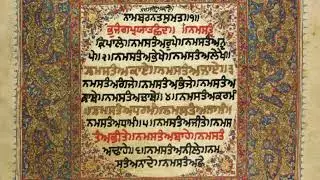 ਨਾਮਬਰਨਤਸੁਮਤ॥੧॥
ਭੁਜੰਗਪ੍ਰਯਾਤਛੰਦ॥ ॥ਨਮਸਤੰ
ਕ੍ਰਿਪਾਲੇ॥ਨਮਸਤੰਅਰੂਪੇ॥ਨਮਸਤੰਅਨੂ
ਪੇ॥੨॥ਨਮਸਤੰਅਭੇਖੇ॥ਨਮਸਤੰਅਲੇਖੇ॥
ਨਮਸਤੰਅਕਾਏ॥ਨਮਸਤੰਅਜਾਏ॥੩॥
ਨਮਸਤੰਅਗੰਜੇ॥ਨਮਸਤੰਅਭੰਜੇ॥ਨਮਸਤੰਅ
ਨਾਮੇ॥ਨਮਸਤੰਅਠਾਮੇ॥੪॥ਨਮਸਤੰਅਕਰਮੰ
ਨਮਸਤੰਅਧਰਮੰ॥ਨਮਸਤੰਅਨਾਮੰ॥
ਨਮਸਤੰਅਧਾਮੰ॥੫॥ਨਮਸਤੰਅਜੀਤੇ॥ਨਮਸ
ਤੰਅਭੀਤੇ॥ਨਮਸਤੰਅਬਾਹੇ॥ਨਮਸਤੰ
ਅਢਾਹੇ॥੬॥ਨਮਸਤੰਅਨੀਲੇ॥ਨਮ
ਸਤੰਅਨਾਦੇ॥ਨਮਸਤੰਅਛੇ